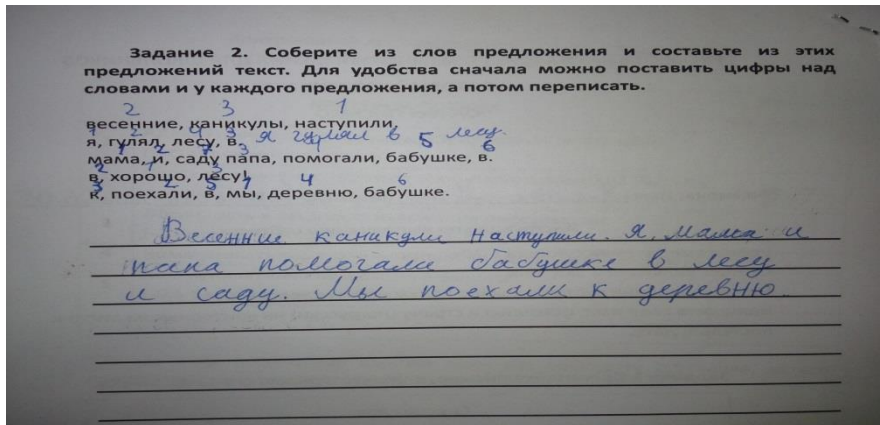 Задание 2. Соберите из слов предложения и составьте из этих
предложений текст. Для удобства сначала можно поставить цифры над
словами и у каждого предложения, а потом переписать.
2 3 1
весенние, каникулы, наступили.
1 2 4 3
я, гулял, лесу, в. я гулял в лесу.
1 2 7 3 4 5 6
мама, и, саду папа, помогали, бабушке, в.
2 1 3
в, хорошо, лесу!
3 2 5 1 4 6
к, поехали, в, мы, деревню, бабушке.
Весенние каникули наступили. Я, мама и
папа помогали бабушке в лесу
и саду. Мы поехали к деревню.